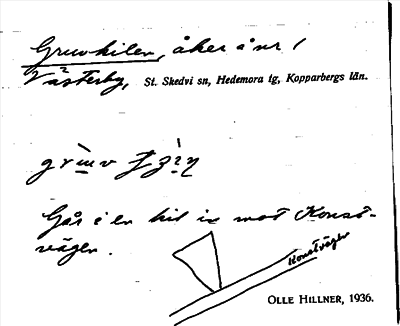 Gruvkilen, åker å nr 1
Västerby, St. Skedvi sn, Hedemora tg, Kopparbergs län.
Går i en kil in mot Konst-
vägen.
Konstvägen
OLLE HILLNER, 1936.